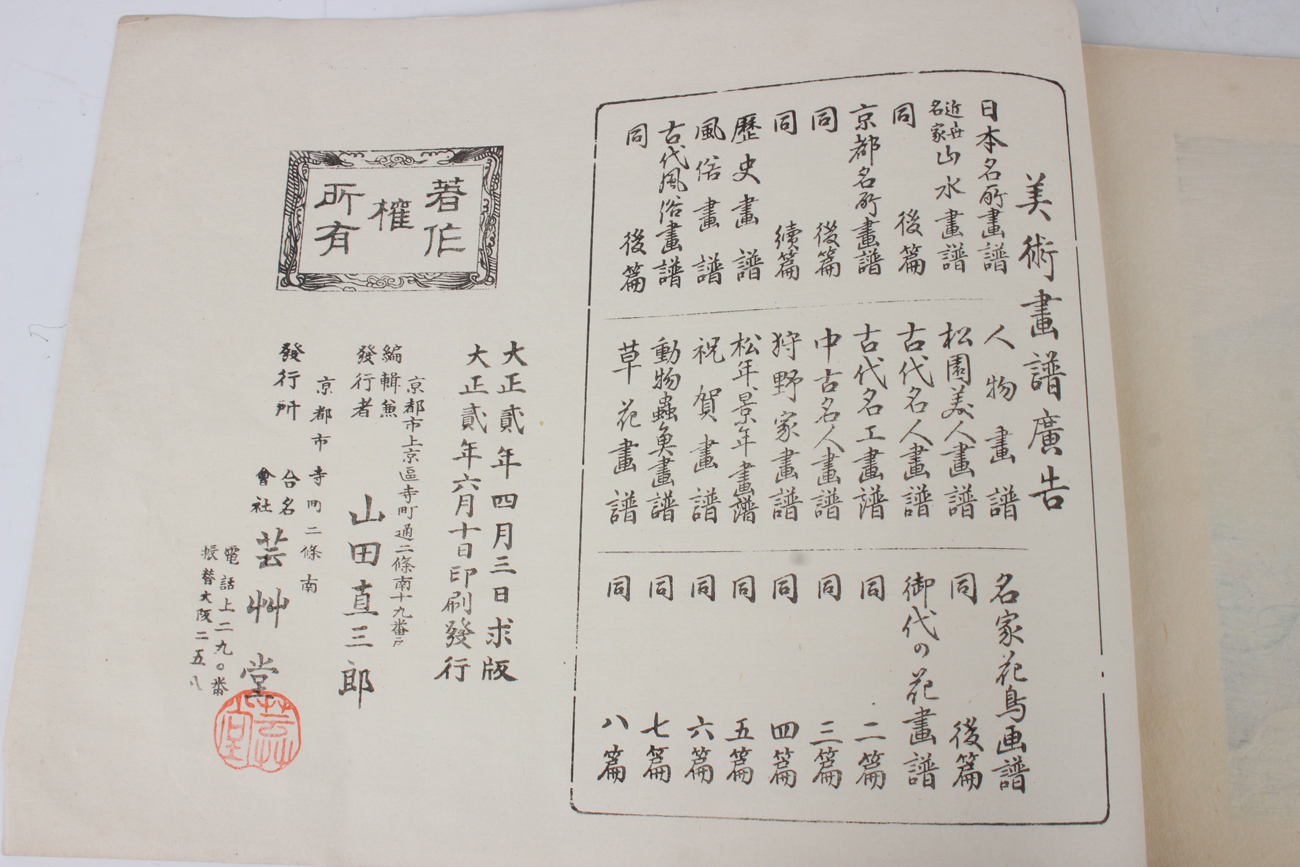 美術畫譜廣告
日本名所畫譜
近世名家山水畫譜
同 後篇
京都名所畫譜
同 後篇
同 續篇
歷史畫譜
風俗畫譜
古代風俗畫譜
同 後篇
人物畫譜
松園美人畫譜
古代名人畫譜
古代名工畫譜
中古名人畫譜
狩野家畫譜
松年景年畫譜
祝賀畫譜
動物蟲魚畫譜
草花畫譜
名家花鳥画譜
同 後篇
御代の花畫譜
同 二篇
同 三篇
同 四篇
同 五篇
同 六篇
同 七篇
同 八篇
著作
權
所有
大正貳年四月三日求版
大正貳年六月十日印刷發行
京都市上京區寺町通二條南十九番戶
編輯兼
發行者 山田直三郎
京都市寺町二條南
發行所 合名會社 芸艸堂
電話上二九〇番
振替大阪二五八
芸艸堂